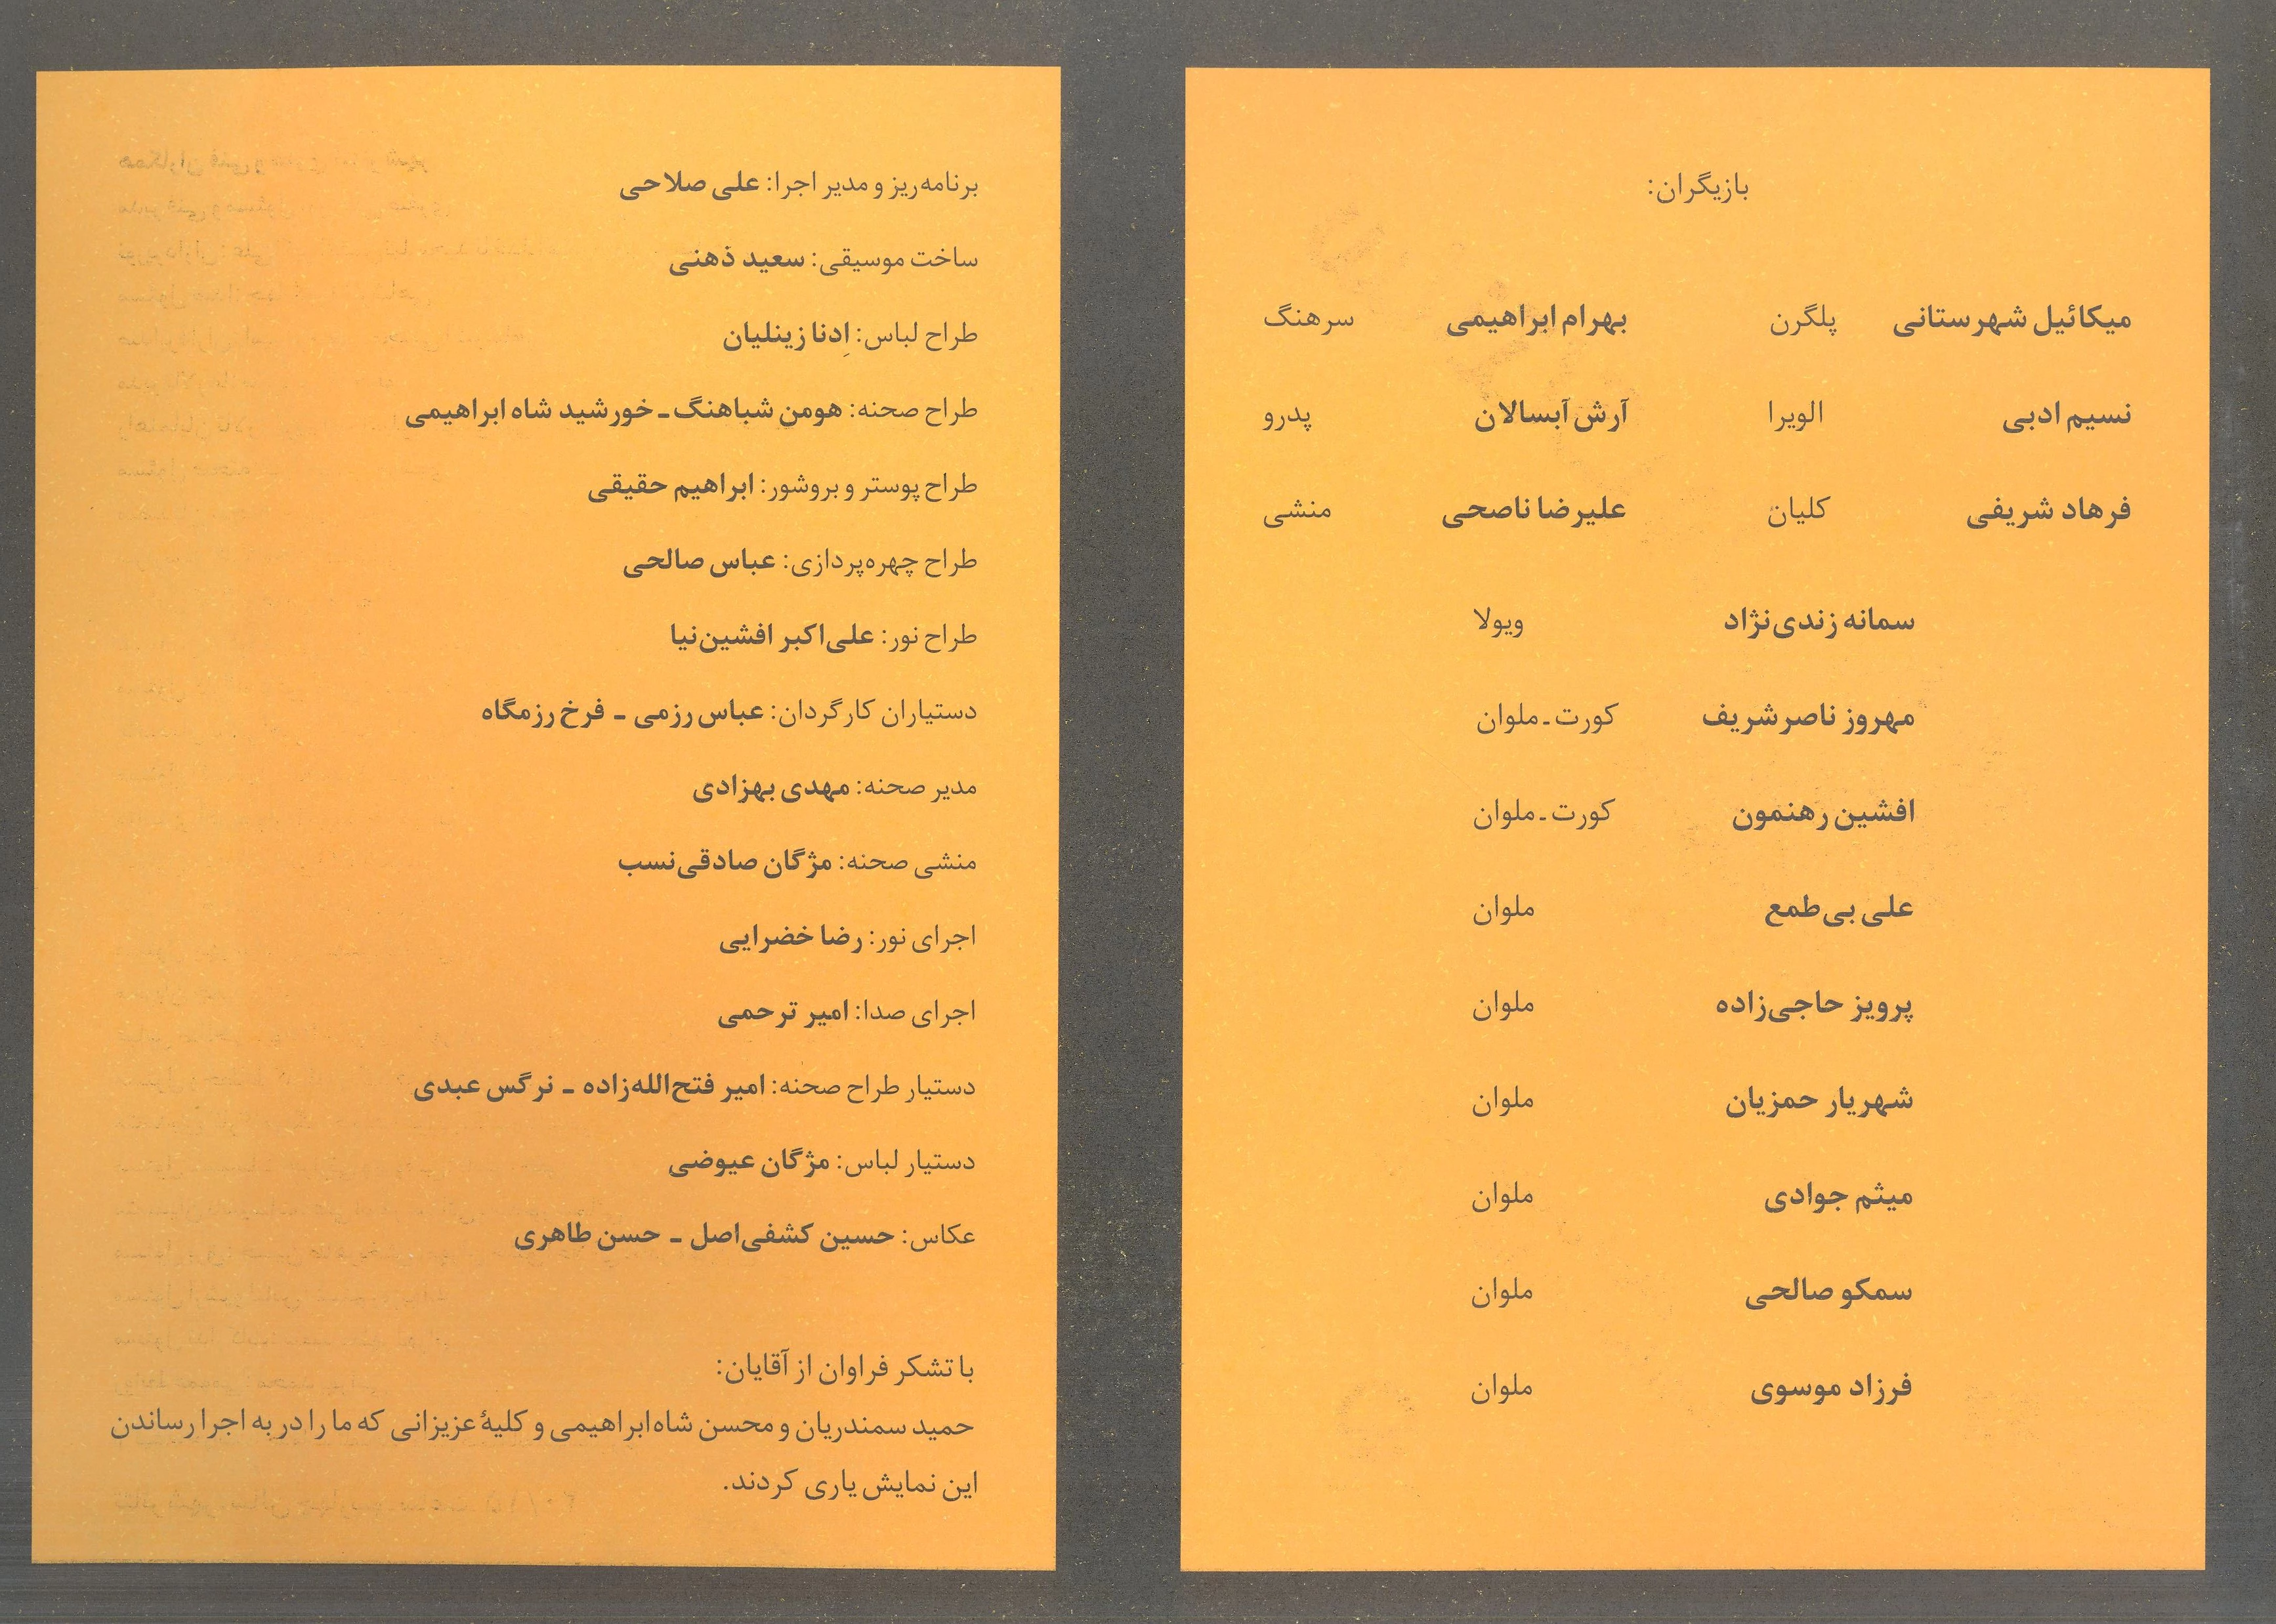 بازیگران:
میکائیل شهرستانی پلگرن بهرام ابراهیمی سرهنگ
نسیم ادبی الویرا آرش آبسالان پدرو
فرهاد شریفی کلیان علیرضا ناصحی منشی
سمانه زندی‌نژاد ویولا
مهروز ناصرشریف کورت ـ ملوان
افشین رهنمون کورت ـ ملوان
علی بی‌طمع ملوان
پرویز حاجی‌زاده ملوان
شهریار حمزیان ملوان
میثم جوادی ملوان
سمکو صالحی ملوان
فرزاد موسوی ملوان
برنامه‌ریز و مدیر اجرا: علی صلاحی
ساخت موسیقی: سعید ذهنی
طراح لباس: اِدنا زینلیان
طراح صحنه: هومن شباهنگ ـ خورشید شاه ابراهیمی
طراح پوستر و بروشور: ابراهیم حقیقی
طراح چهره‌پردازی: عباس صالحی
طراح نور: علی‌اکبر افشین‌نیا
دستیاران کارگردان: عباس رزمی ـ فرخ رزمگاه
مدیر صحنه: مهدی بهزادی
منشی صحنه: مژگان صادقی‌نسب
اجرای نور: رضا خضرایی
اجرای صدا: امیر ترحمی
دستیار طراح صحنه: امیر فتح‌الله‌زاده ـ نرگس عبدی
دستیار لباس: مژگان عیوضی
عکاس: حسین کشفی‌اصل ـ حسن طاهری
با تشکر فراوان از آقایان:
حمید سمندریان و محسن شاه‌ابراهیمی و کلیهٔ عزیزانی که ما را در به اجرا رساندن
این نمایش یاری کردند.